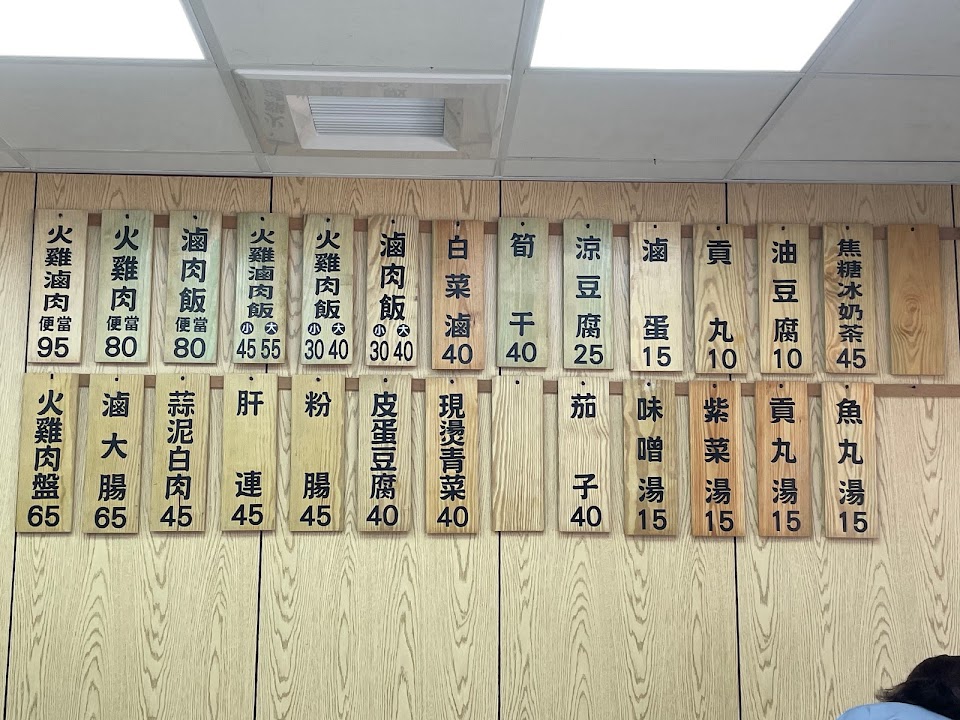 火雞滷肉便當 95
火雞肉便當 80
滷肉飯便當 80
火雞滷肉飯 小 45 大 55
火雞肉飯 小 30 大 40
滷肉飯 小 30 大 40
白菜滷 40
筍干 40
涼豆腐 25
滷蛋 15
貢丸 10
油豆腐 10
焦糖冰奶茶 45
火雞肉盤 65
滷大腸 65
蒜泥白肉 45
肝連 45
粉腸 45
皮蛋豆腐 40
現燙青菜 40
茄子 40
味噌湯 15
紫菜湯 15
貢丸湯 15
魚丸湯 15